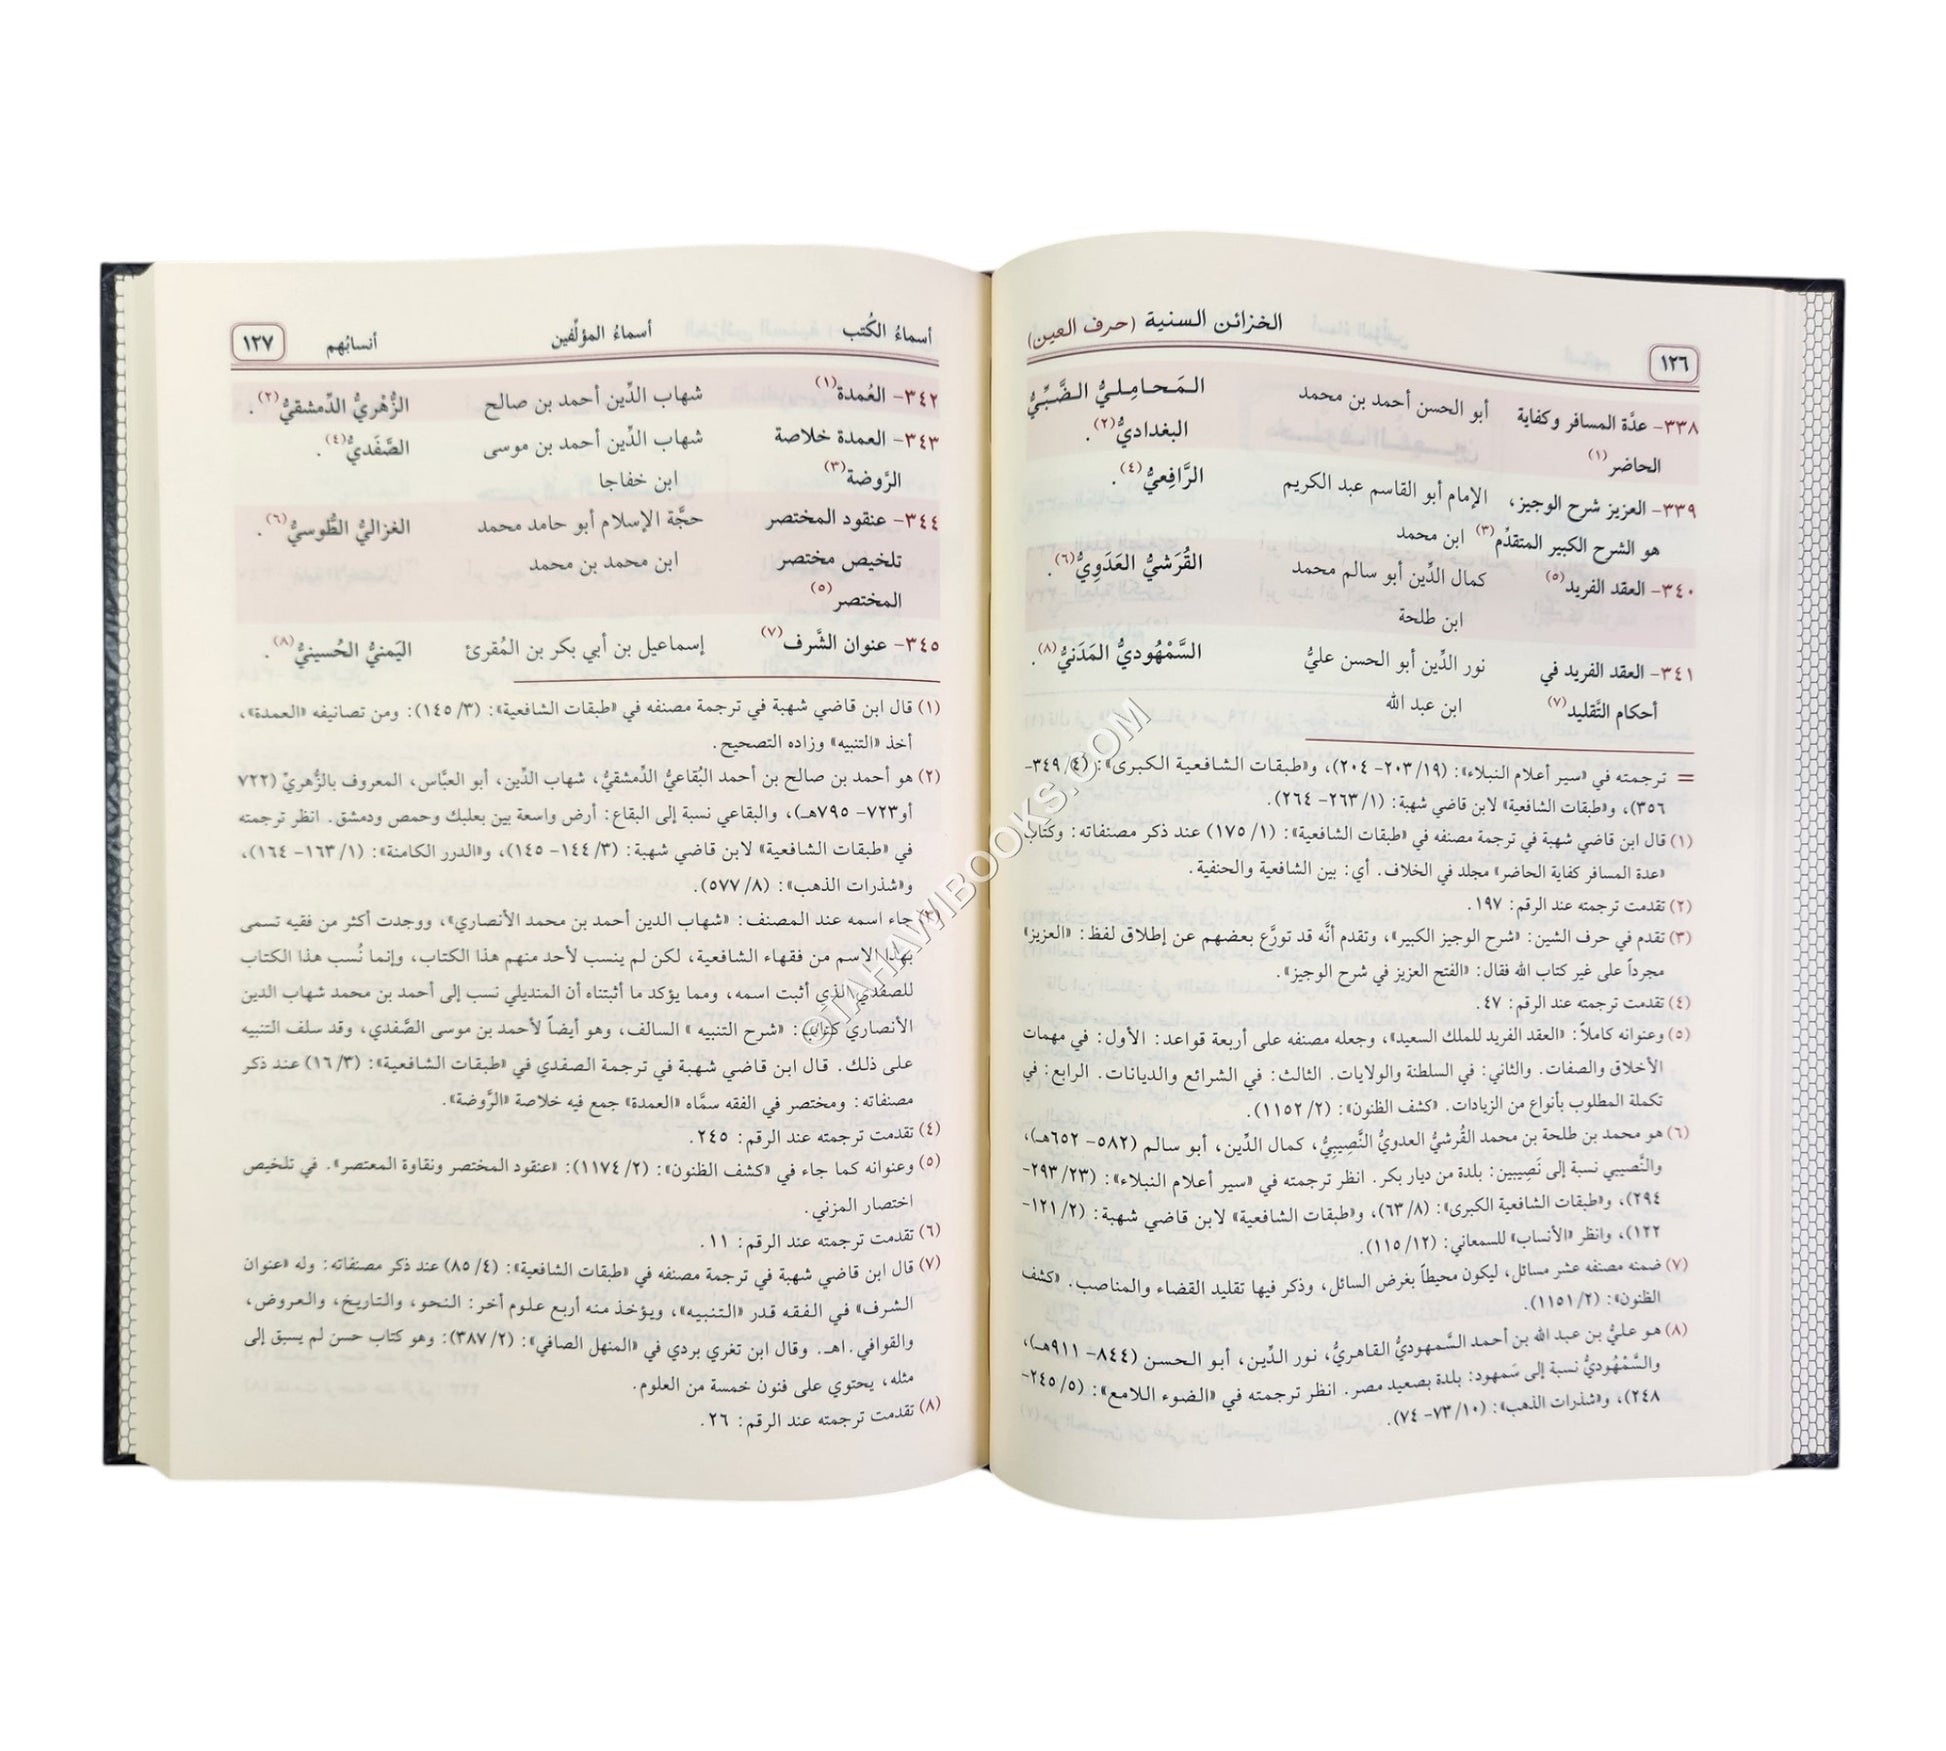 ١٢٦
الخزائن السنية (حرف العين)
٣٣٨- عدَّة المسافر وكفاية أبو الحسن أحمد بن محمد المَحامِليُّ الضَّبِّيُّ
الحاضر(١) البغداديُّ(٢).
٣٣٩- العزيز شرح الوجيز، الإمام أبو القاسم عبد الكريم الرَّافِعيُّ(٤).
هو الشرح الكبير المتقدِّم(٣) ابن محمد
٣٤٠- العقد الفريد(٥) كمال الدِّين أبو سالم محمد القُرَشيُّ العَدَوِيُّ(٦).
ابن طلحة
٣٤١- العقد الفريد في نور الدِّين أبو الحسن عليُّ السَّمْهُوديُّ المَدَنيُّ(٨).
أحكام التَّقليد(٧) ابن عبد الله
= ترجمته في «سير أعلام النبلاء»: (١٩/ ٢٠٣- ٢٠٤)، و«طبقات الشافعية الكبرى»: (٤/ ٣٤٩-
٣٥٦)، و«طبقات الشافعية» لابن قاضي شهبة: (١/ ٢٦٣- ٢٦٤).
(١) قال ابن قاضي شهبة في ترجمة مصنفه في «طبقات الشافعية»: (١/ ١٧٥) عند ذكر مصنفاته: وكتاب
«عدة المسافر كفاية الحاضر» مجلد في الخلاف. أي: بين الشافعية والحنفية.
(٢) تقدمت ترجمته عند الرقم: ١٩٧.
(٣) تقدم في حرف الشين: «شرح الوجيز الكبير»، وتقدم أنَّه قد تورَّع بعضهم عن إطلاق لفظ: «العزيز»
مجرداً على غير كتاب الله فقال: «الفتح العزيز في شرح الوجيز».
(٤) تقدمت ترجمته عند الرقم: ٤٧.
(٥) وعنوانه كاملاً: «العقد الفريد للملك السعيد»، وجعله مصنفه على أربعة قواعد: الأول: في مهمات
الأخلاق والصفات. والثاني: في السلطنة والولايات. الثالث: في الشرائع والديانات. الرابع: في
تكملة المطلوب بأنواع من الزيادات. «كشف الظنون»: (٢/ ١١٥٢).
(٦) هو محمد بن طلحة بن محمد القُرشيُّ العدويُّ النَّصِيبِيُّ، كمال الدِّين، أبو سالم (٥٨٢- ٦٥٢هـ)،
والنَّصيبي نسبة إلى نَصِيبين: بلدة من ديار بكر. انظر ترجمته في «سير أعلام النبلاء»: (٢٣/ ٢٩٣-
٢٩٤)، و«طبقات الشافعية الكبرى»: (٨/ ٦٣)، و«طبقات الشافعية» لابن قاضي شهبة: (٢/ ١٢١-
١٢٢)، وانظر «الأنساب» للسمعاني: (١٢/ ١١٥).
(٧) ضمنه مصنفه عشر مسائل، ليكون محيطاً بغرض السائل، وذكر فيها تقليد القضاء والمناصب. «كشف
الظنون»: (٢/ ١١٥١).
(٨) هو عليُّ بن عبد الله بن أحمد السَّمهوديُّ القاهريُّ، نور الدِّين، أبو الحسن (٨٤٤- ٩١١هـ)،
والسَّمْهُوديُّ نسبة إلى سَمهود: بلدة بصعيد مصر. انظر ترجمته في «الضوء اللامع»: (٥/ ٢٤٥-
٢٤٨)، و«شذرات الذهب»: (١٠/ ٧٣- ٧٤).
أسماءُ الكُتب أسماءُ المؤلِّفين أنسابُهم ١٢٧
٣٤٢- العُمدة(١) شهاب الدِّين أحمد بن صالح الزُّهْريُّ الدِّمشقيُّ(٢).
٣٤٣- العمدة خلاصة شهاب الدِّين أحمد بن موسى الصَّفَديُّ(٤).
الرَّوضة(٣) ابن خفاجا
٣٤٤- عنقود المختصر حجَّة الإسلام أبو حامد محمد الغزاليُّ الطُّوسيُّ(٦).
تلخيص مختصر ابن محمد بن محمد
المختصر(٥)
٣٤٥- عنوان الشَّرف(٧) إسماعيل بن أبي بكر بن المُقرئ اليَمنيُّ الحُسينيُّ(٨).
(١) قال ابن قاضي شهبة في ترجمة مصنفه في «طبقات الشافعية»: (٣/ ١٤٥): ومن تصانيفه «العمدة»،
أخذ «التنبيه» وزاده التصحيح.
(٢) هو أحمد بن صالح بن أحمد البُقاعيُّ الدِّمشقيُّ، شهاب الدِّين، أبو العبَّاس، المعروف بالزُّهريِّ (٧٢٢
أو٧٢٣- ٧٩٥هـ)، والبقاعي نسبة إلى البقاع: أرض واسعة بين بعلبك وحمص ودمشق. انظر ترجمته
في «طبقات الشافعية» لابن قاضي شهبة: (٣/ ١٤٤- ١٤٥)، و«الدرر الكامنة»: (١/ ١٦٣- ١٦٤)،
و«شذرات الذهب»: (٨/ ٥٧٧).
(٣) جاء اسمه عند المصنف: «شهاب الدين أحمد بن محمد الأنصاري»، ووجدت أكثر من فقيه تسمى
بهذا الاسم من فقهاء الشافعية، لكن لم ينسب لأحد منهم هذا الكتاب، وإنما نُسب هذا الكتاب
للصفدي الذي أثبت اسمه، ومما يؤكد ما أثبتناه أن المنديلي نسب إلى أحمد بن محمد شهاب الدين
الأنصاري كتاب: «شرح التنبيه» السالف، وهو أيضاً لأحمد بن موسى الصَّفدي، وقد سلف التنبيه
على ذلك. قال ابن قاضي شهبة في ترجمة الصفدي في «طبقات الشافعية»: (٣/ ١٦) عند ذكر
مصنفاته: ومختصر في الفقه سمَّاه «العمدة» جمع فيه خلاصة «الرَّوضة».
(٤) تقدمت ترجمته عند الرقم: ٢٤٥.
(٥) وعنوانه كما جاء في «كشف الظنون»: (٢/ ١١٧٤): «عنقود المختصر ونقاوة المعتصر». في تلخيص
اختصار المزني.
(٦) تقدمت ترجمته عند الرقم: ١١.
(٧) قال ابن قاضي شهبة في ترجمة مصنفه في «طبقات الشافعية»: (٤/ ٨٥) عند ذكر مصنفاته: وله «عنوان
الشرف» في الفقه قدر «التنبيه»، ويؤخذ منه أربع علوم أخر: النحو، والتاريخ، والعروض،
والقوافي.اهـ. وقال ابن تغري بردي في «المنهل الصافي»: (٢/ ٣٨٧): وهو كتاب حسن لم يسبق إلى
مثله، يحتوي على فنون خمسة من العلوم.
(٨) تقدمت ترجمته عند الرقم: ٢٦.
©TAHAWIBOOKS.COM